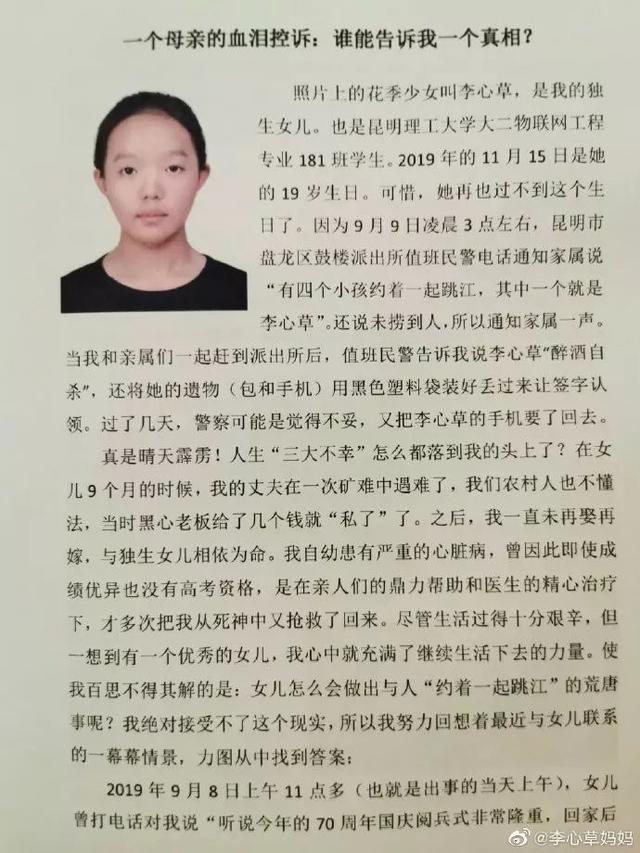 一个母亲的血泪控诉：谁能告诉我一个真相？
照片上的花季少女叫李心草，是我的独
生女儿。也是昆明理工大学大二物联网工程
专业 181 班学生。2019 年的 11 月 15 日是她
的 19 岁生日。可惜，她再也过不到这个生
日了。因为 9 月 9 日凌晨 3 点左右，昆明市
盘龙区鼓楼派出所值班民警电话通知家属说
“有四个小孩约着一起跳江，其中一个就是
李心草”。还说未捞到人，所以通知家属一声。
当我和亲属们一起赶到派出所后，值班民警告诉我说李心草“醉酒自
杀”，还将她的遗物（包和手机）用黑色塑料袋装好丢过来让签字认
领。过了几天，警察可能是觉得不妥，又把李心草的手机要了回去。
真是晴天霹雳！人生“三大不幸”怎么都落到我的头上了？在女
儿 9 个月的时候，我的丈夫在一次矿难中遇难了，我们农村人也不懂
法，当时黑心老板给了几个钱就“私了”了。之后，我一直未再娶再
嫁，与独生女儿相依为命。我自幼患有严重的心脏病，曾因此即使成
绩优异也没有高考资格，是在亲人们的鼎力帮助和医生的精心治疗
下，才多次把我从死神中又抢救了回来。尽管生活过得十分艰辛，但
一想到有一个优秀的女儿，我心中就充满了继续生活下去的力量。使
我百思不得其解的是：女儿怎么会做出与人“约着一起跳江”的荒唐
事呢？我绝对接受不了这个现实，所以我努力回想着最近与女儿联系
的一幕幕情景，力图从中找到答案：
2019 年 9 月 8 日上午 11 点多（也就是出事的当天上午），女儿
曾打电话对我说“听说今年的 70 周年国庆阅兵式非常隆重，回家后
@李心草妈妈